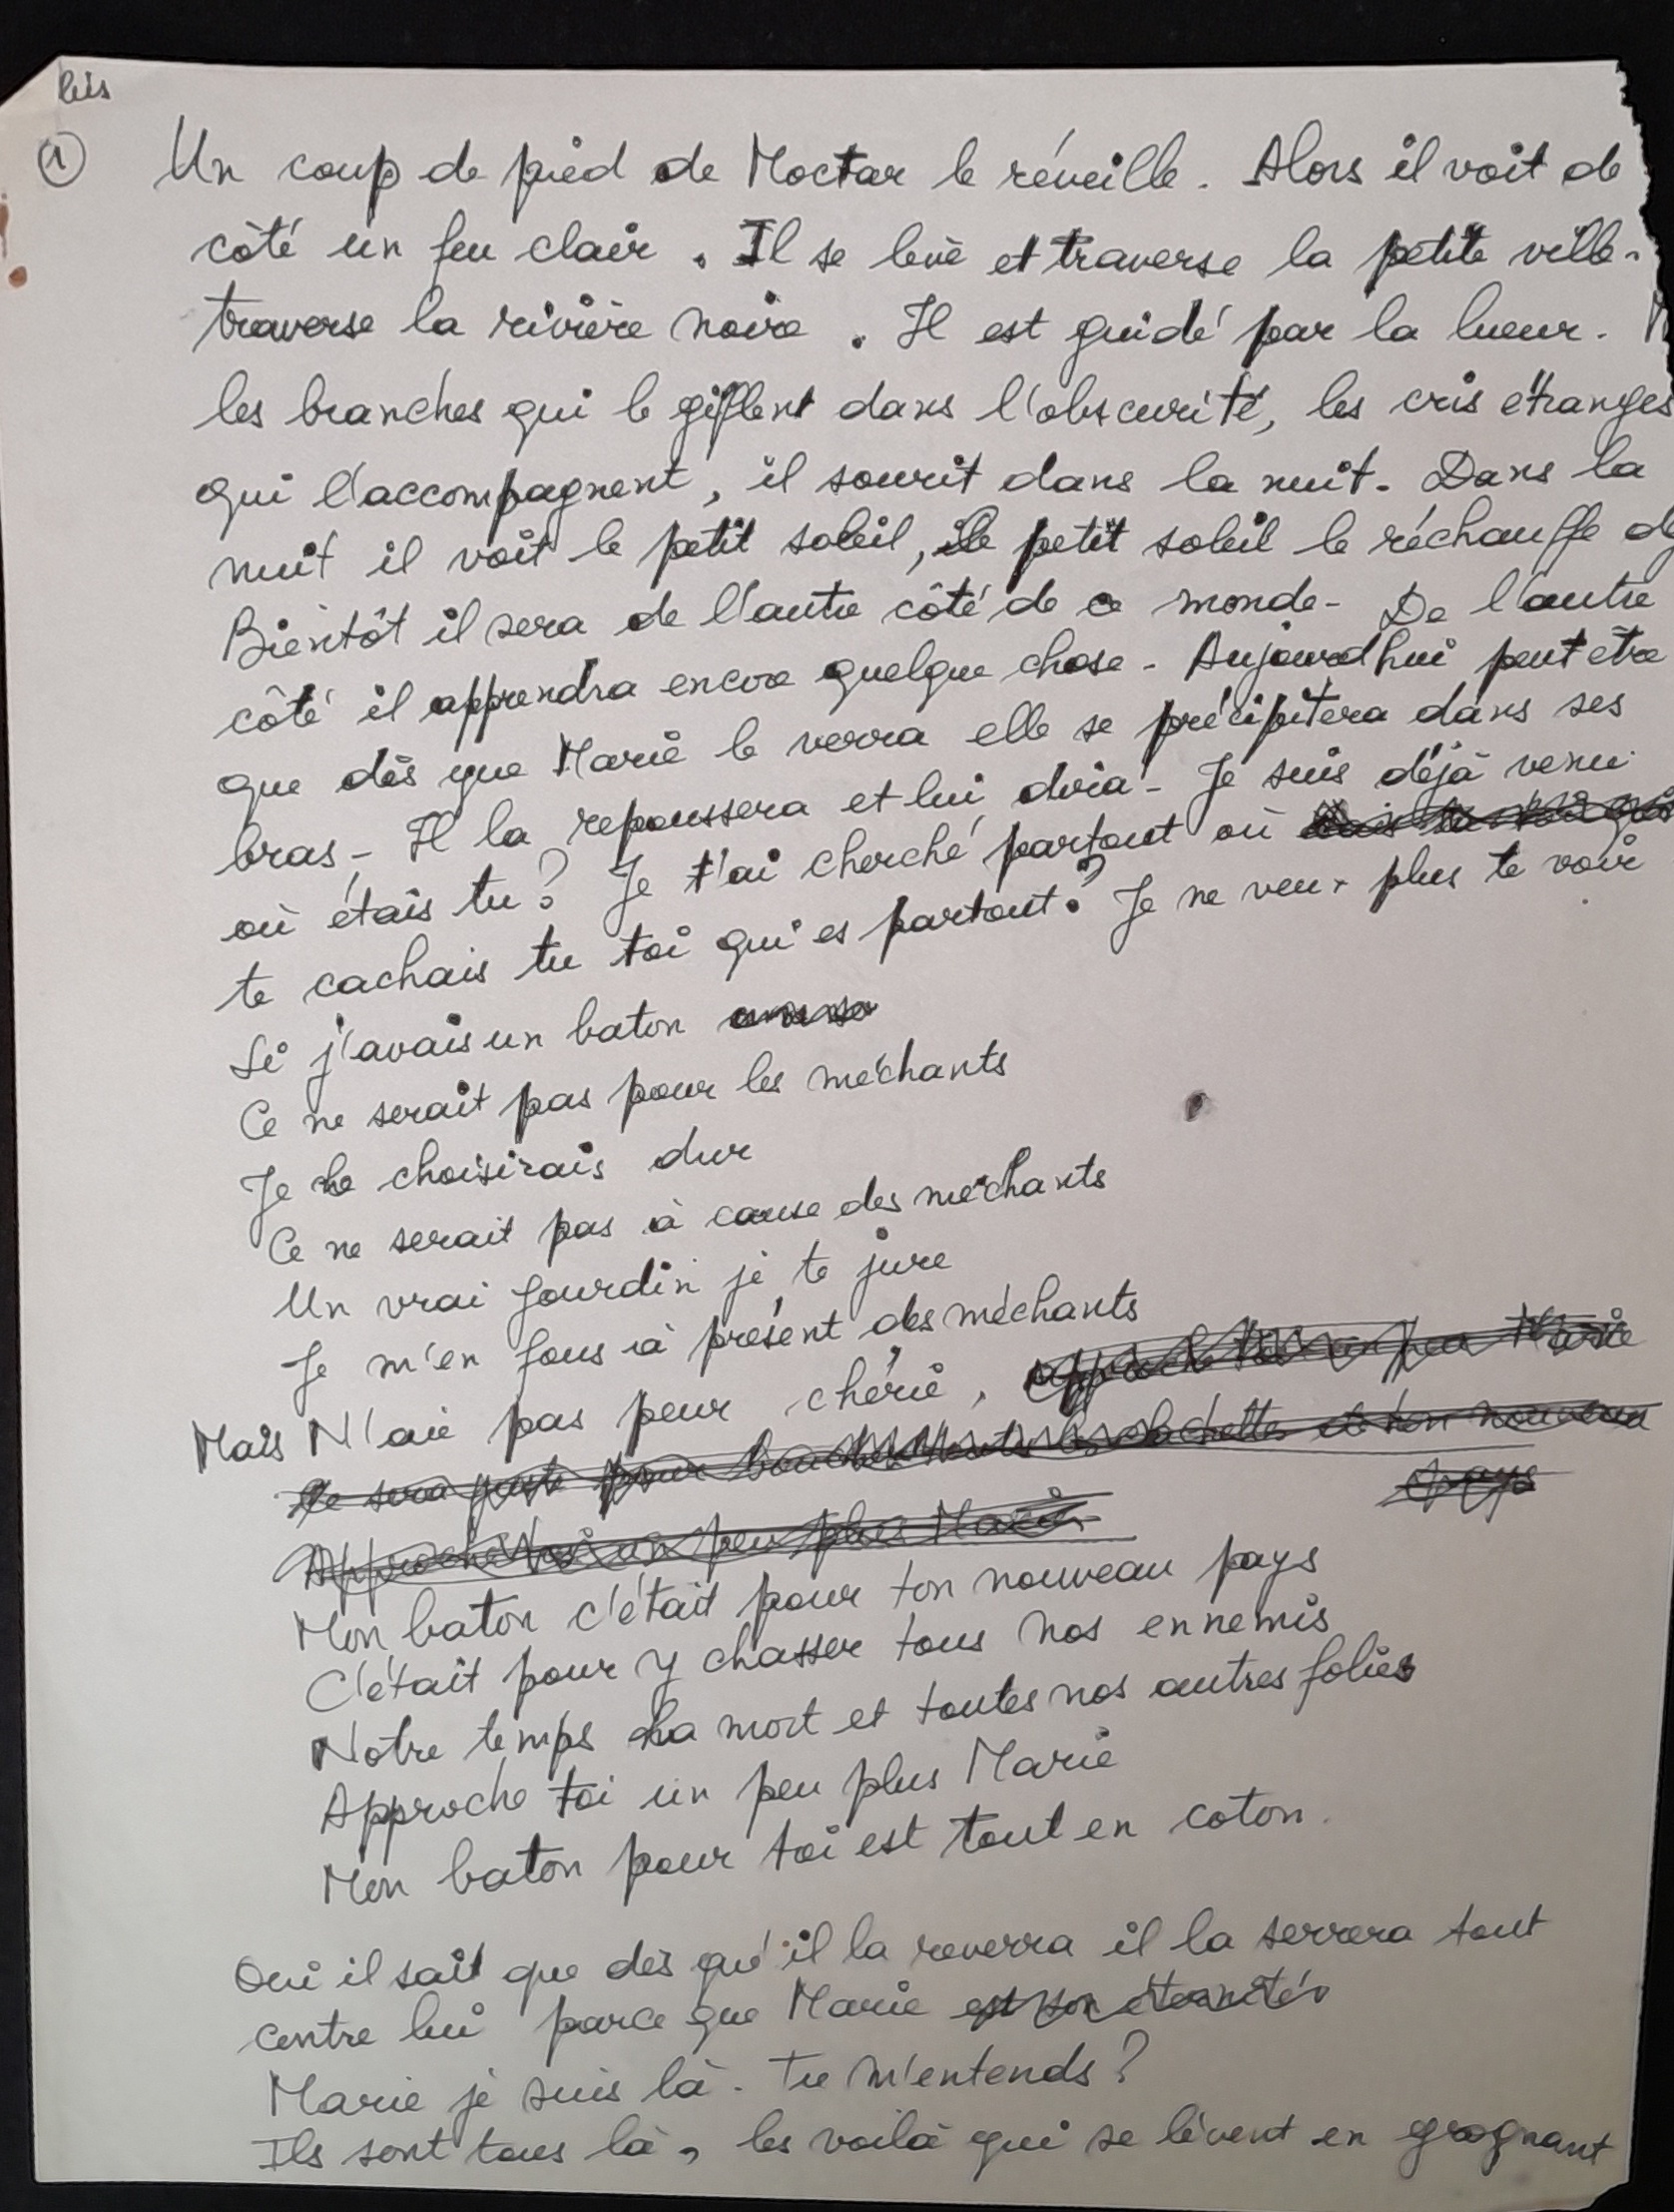 bis
① Un coup de pied de Moctar le réveille. Alors il voit de
côté un feu clair. Il se lève et traverse la petite ville.
traverse la rivière noire. Il est guidé par la lueur.
les branches qui le giflent dans l'obscurité, les cris étranges
qui l'accompagnent, il sourit dans la nuit. Dans la
nuit il voit le petit soleil, le petit soleil le réchauffe
Bientôt il sera de l'autre côté de ce monde - De l'autre
côté il apprendra encore quelque chose - Aujourd'hui peut être
que dès que Marie le verra elle se précipitera dans ses
bras - Il la repoussera et lui dira - Je suis déjà venu
où étais tu ? Je t'ai cherché partout où
te cachais tu toi qui es partout ? Je ne veux plus te voir
Si j'avais un baton
Ce ne serait pas pour les méchants
Je le choisirais dur
Ce ne serait pas à cause des méchants
Un vrai gourdin je te jure
Je m'en fous à présent des méchants
Mais N'aie pas peur chérie, approche toi un peu Marie
Ce sera juste pour et ton nouveau
pays
Approche toi un peu plus Marie
Mon baton c'était pour ton nouveau pays
C'était pour y chasser tous nos ennemis
Notre temps La mort et toutes nos autres folies
Approche toi un peu plus Marie
Mon baton pour toi est tout en coton.
Oui il sait que dès qu'il la reverra il la serrera tout
contre lui parce que Marie est son éternité
Marie je suis là. Tu m'entends ?
Ils sont tous là, les voilà qui se lèvent en grognant